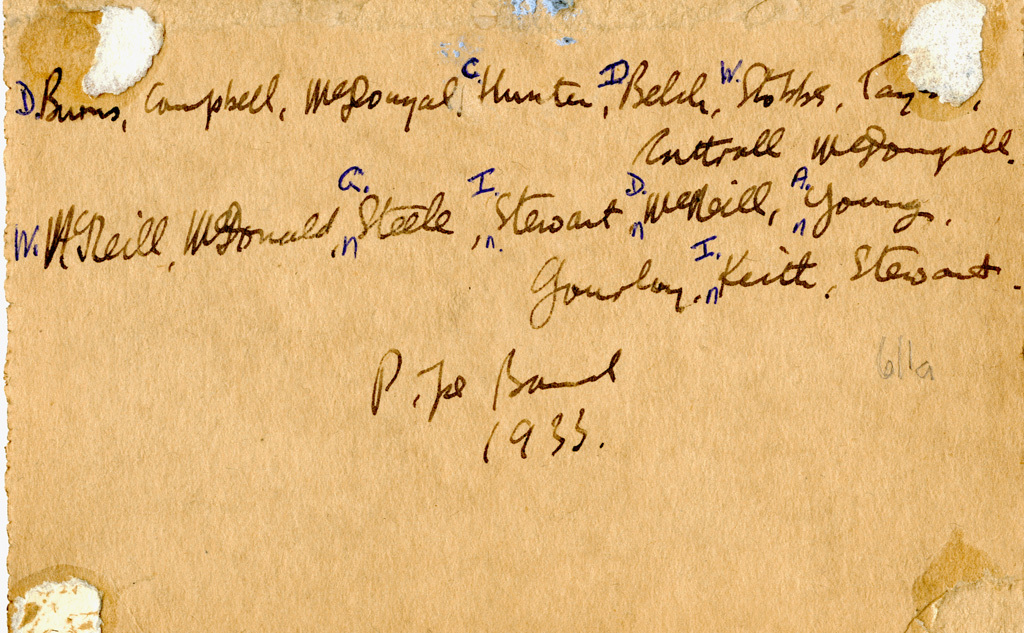 D. Burns, Campbell, McDougal, C. Hunter, D. Belch, W. Stobbs,
McDougall.
W. McNeill, McDonald, G. Steele, I. Stewart, D. McNeill, A. Young,
Gourlay, I. Keith, Stewart.
Pipe Band
1933.
611a